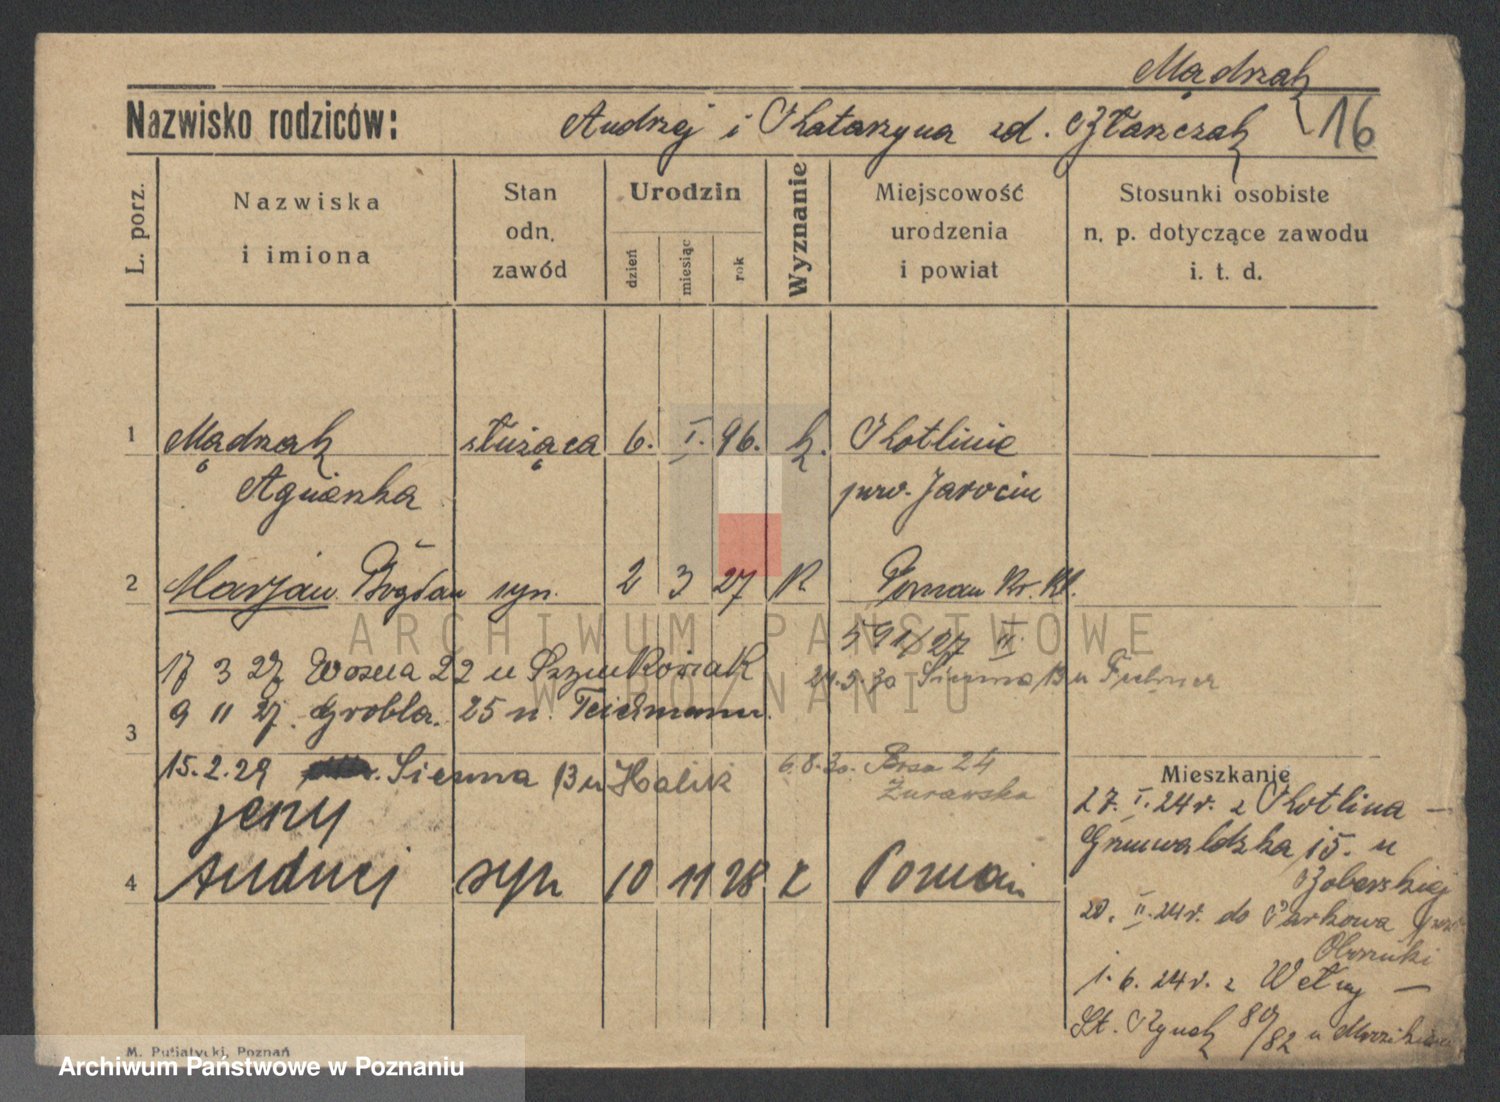 Mądrzak
Nazwisko rodziców: Andrzej i Katarzyna zd. 16
L. porz.
Nazwiska i imiona
Stan odn. zawód
Urodzin
dzień
miesiąc
rok
Wyznanie
Miejscowość urodzenia i powiat
Stosunki osobiste n. p. dotyczące zawodu i. t. d.
1 Mądrzak służąca 6. I. 96. k. Kotlinie
Agnieszka pow. Jarocin
2 Marjan Bogdan syn. 2 3 27 K Poznań Kr. Kl.
591/27 II
ARCHIWUM PAŃSTWOWE
W POZNANIU
17 3 27 Wozna 22 u Szymkowiak
24.5.30 Sienna 13 u
9 11 27. Grobla. 25 u. Teichmann.
3
15.2.29 Sienna 13 u Halik
6.8.30. 24
Żurawska
Jerzy
4 Andrzej syn 10 11 28 k Poznań
Mieszkanie
27. I. 24r. z Kotlina —
Grunwaldzka 15. u
20. II. 24r. do Parkowa
1. 6. 24r. z Wełny —
St. Rynek 80/82 u
M. Putiatycki, Poznań
Archiwum Państwowe w Poznaniu